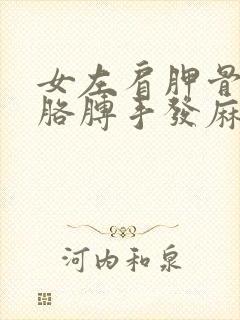 女左肩胛骨
胳膊手發麻
河内和泉